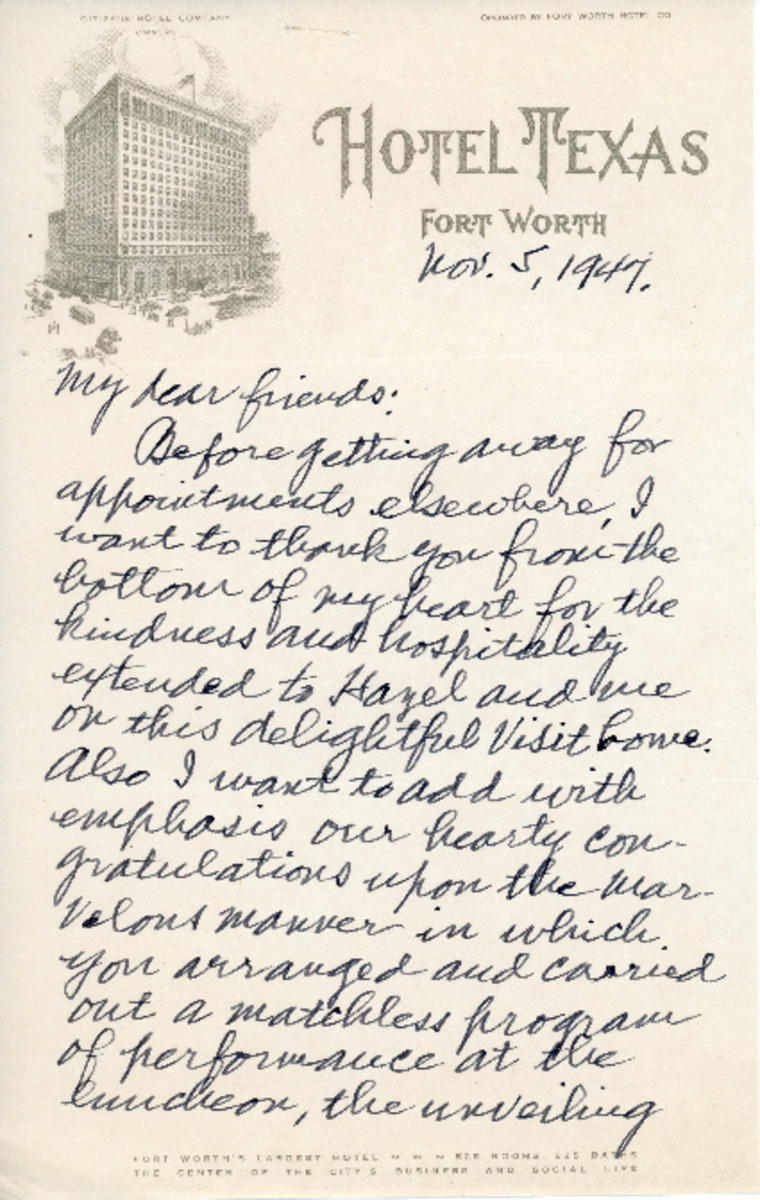 CITIZENS HOTEL COMPANY
OWNERS
OPERATED BY FORT WORTH HOTEL CO
HOTEL TEXAS
FORT WORTH
Nov. 5, 1947.
My dear friends:
Before getting away for
appointments elsewhere, I
want to thank you from the
bottom of my heart for the
kindness and hospitality
extended to Hazel and me
on this delightful visit home.
Also I want to add with
emphasis our hearty con-
gratulations upon the mar-
velous manner in which
you arranged and carried
out a matchless program
of performance at the
luncheon, the unveiling
FORT WORTH'S LARGEST HOTEL ~ ~ ~ 525 ROOMS, 525 BATHS
THE CENTER OF THE CITY'S BUSINESS AND SOCIAL LIFE